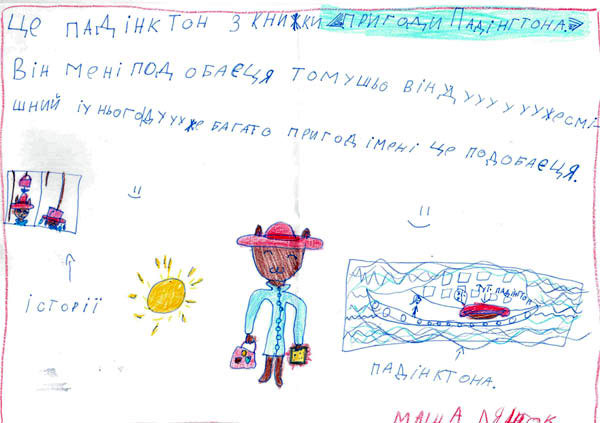 ЦЕ ПАДІНКТОН З КНИЖКИ "ПРИГОДИ ПАДІНГТОНА."
ВІН МЕНІ ПОДОБАЄЦЯ ТОМУШЬО ВІН ДУУУУУУЖЕСМІ-
ШНИЙ ІУ НЬОГО ДУУУЖЕ БАГАТО ПРИГОД ІМЕНІ ЦЕ ПОДОБАЄЦЯ.
ІСТОРІЇ
ТУТ ПАДІНГТОН
ПАДІНКТОНА.
МАША